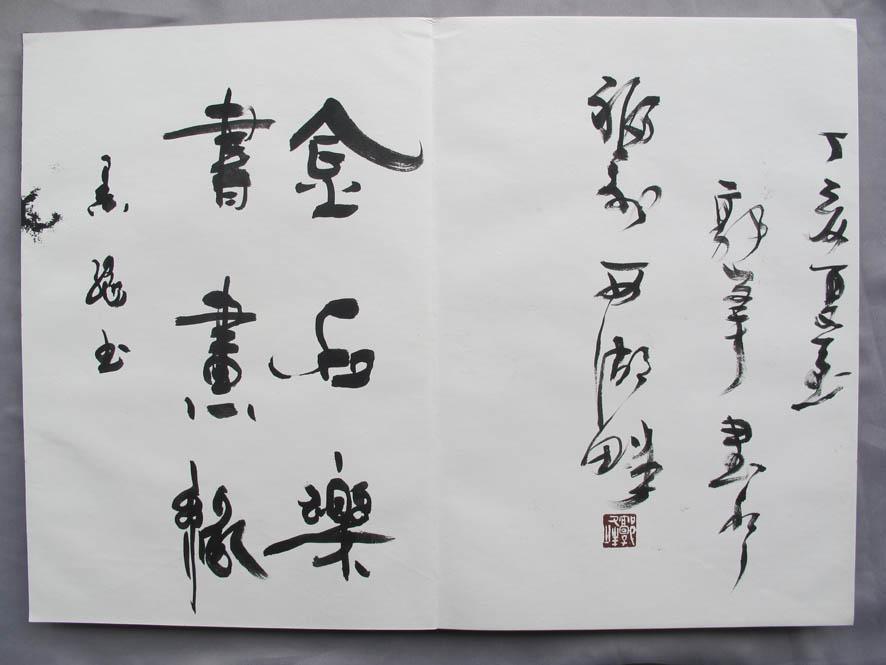 丁亥夏至
郭書於
福州西湖畔
金石樂
書畫緣
书